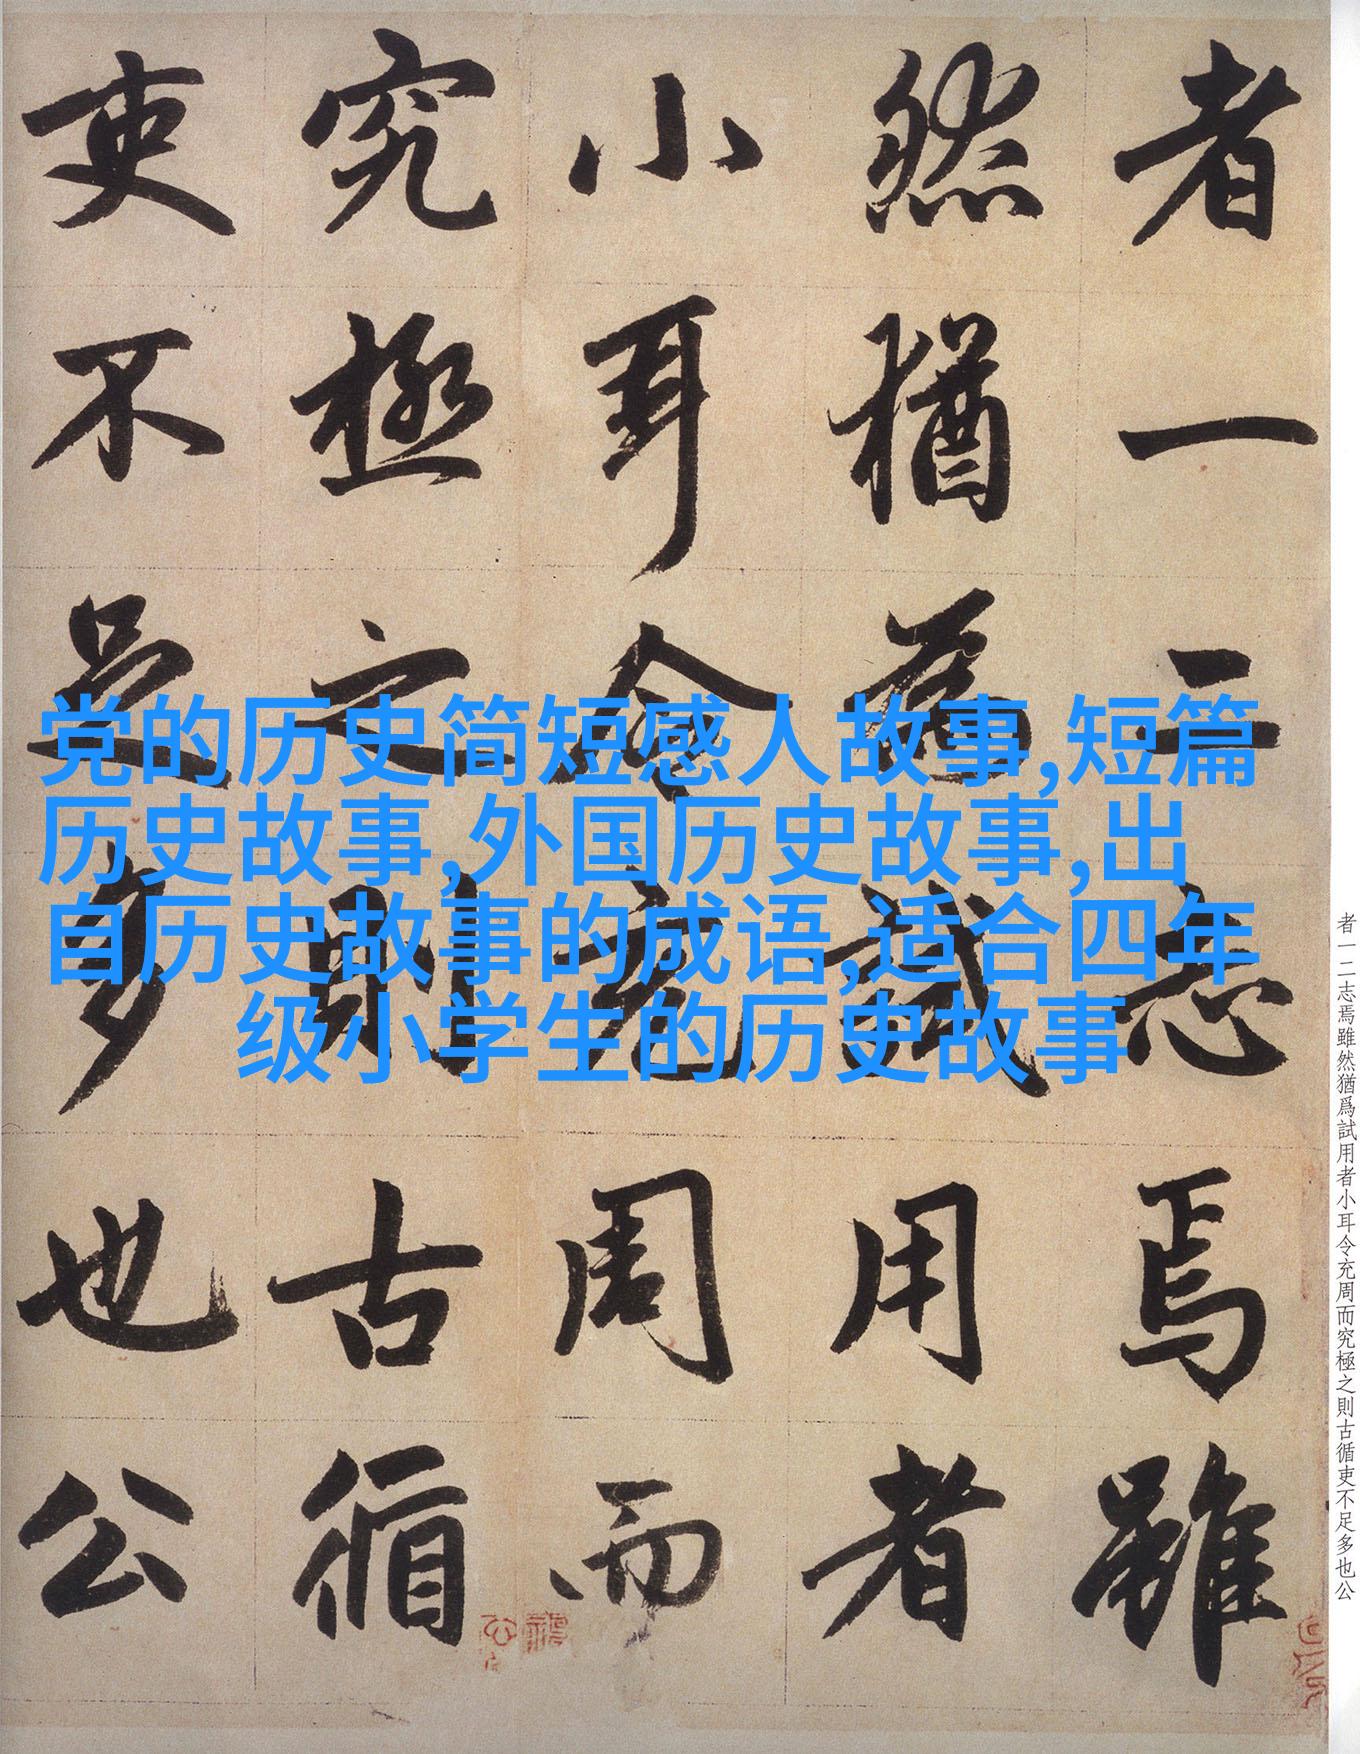 者一二志焉雖
然猶爲試用者
小耳令充周而
究極之則古循
吏不足多也公
党的历史简短感人故事,短篇
历史故事,外国历史故事,出
自历史故事的成语,适合四年
级小学生的历史故事
者一二志焉雖然猶爲試用者小耳令充周而究極之則古循吏不足多也公